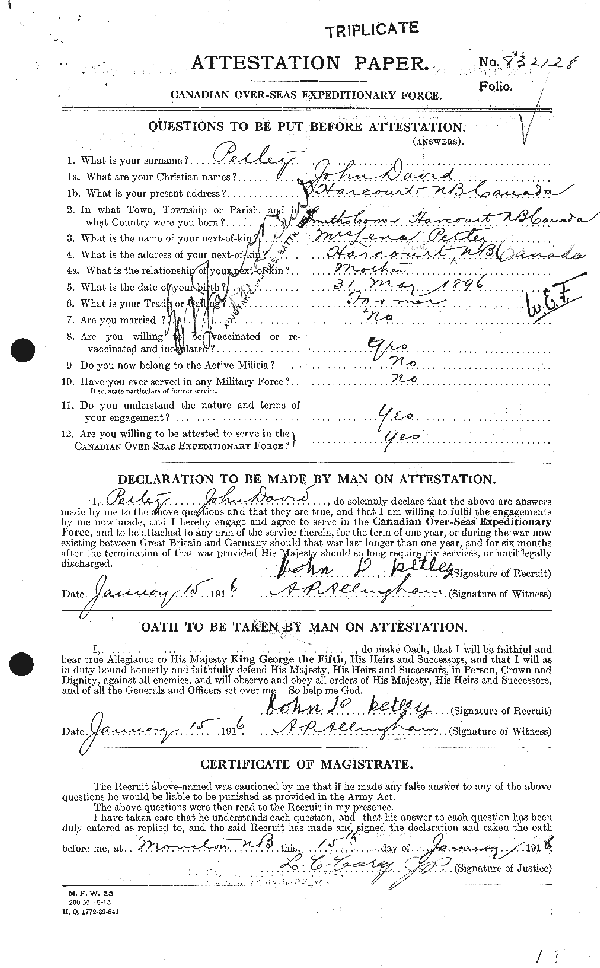 TRIPLICATE
ATTESTATION PAPER.
No. 832128
Folio.
CANADIAN OVER-SEAS EXPEDITIONARY FORCE.
QUESTIONS TO BE PUT BEFORE ATTESTATION.
(ANSWERS).
1. What is your surname? Petley
1a. What are your Christian names? John David
1b. What is your present address? Harcourt NB Canada
2. In what Town, Township or Parish, and in
what Country were you born? Harcourt NB Canada
3. What is the name of your next-of-kin? Mrs Lena Petley
4. What is the address of your next-of-kin? Harcourt, NB Canada
4a. What is the relationship of your next-of-kin? Mother
5. What is the date of your birth? 31 May 1896
6. What is your Trade or Calling? Farmer
W.C.F.
7. Are you married? No
8. Are you willing to be vaccinated or re-
vaccinated and inoculated? Yes
9. Do you now belong to the Active Militia? No
10. Have you ever served in any Military Force? No
If so, state particulars of former service.
11. Do you understand the nature and terms of
your engagement? Yes
12. Are you willing to be attested to serve in the
CANADIAN OVER-SEAS EXPEDITIONARY FORCE? Yes
DECLARATION TO BE MADE BY MAN ON ATTESTATION.
I, Petley John David, do solemnly declare that the above are answers
made by me to the above questions and that they are true, and that I am willing to fulfil the engagements
by me now made, and I hereby engage and agree to serve in the Canadian Over-Seas Expeditionary
Force, and to be attached to any arm of the service therein, for the term of one year, or during the war now
existing between Great Britain and Germany should that war last longer than one year, and for six months
after the termination of that war provided His Majesty should so long require my services, or until legally
discharged.
John D Petley (Signature of Recruit)
Date January 15 1916 A R Allingham (Signature of Witness)
OATH TO BE TAKEN BY MAN ON ATTESTATION.
I, do make Oath, that I will be faithful and
bear true Allegiance to His Majesty King George the Fifth, His Heirs and Successors, and that I will as
in duty bound honestly and faithfully defend His Majesty, His Heirs and Successors, in Person, Crown and
Dignity, against all enemies, and will observe and obey all orders of His Majesty, His Heirs and Successors,
and of all the Generals and Officers set over me. So help me God.
John D Petley (Signature of Recruit)
Date January 15 1916 A R Allingham (Signature of Witness)
CERTIFICATE OF MAGISTRATE.
The Recruit above-named was cautioned by me that if he made any false answer to any of the above
questions he would be liable to be punished as provided in the Army Act.
The above questions were then read to the Recruit in my presence.
I have taken care that he understands each question, and that his answer to each question has been
duly entered as replied to, and the said Recruit has made and signed the declaration and taken the oath
before me, at Moncton NB this 15th day of January 1916
(Signature of Justice)
M. F. W. 23
H. Q. 1772-39-841